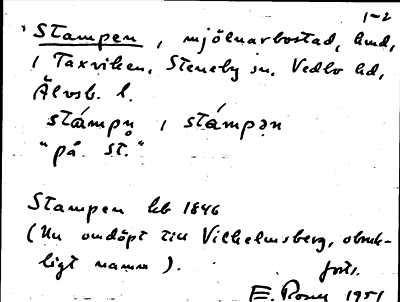 1-2
Stampen, mjölnarbostad, lund,
i Taxviken, Steneby sn, Vedbo hd,
Älvsb. l.
stámpn̥, stámpən
"på St."
Stampen hb 1846
(Nu omdöpt till Vilhelmsberg, obruk-
ligt namn).
forts.
E. Rosell 1951